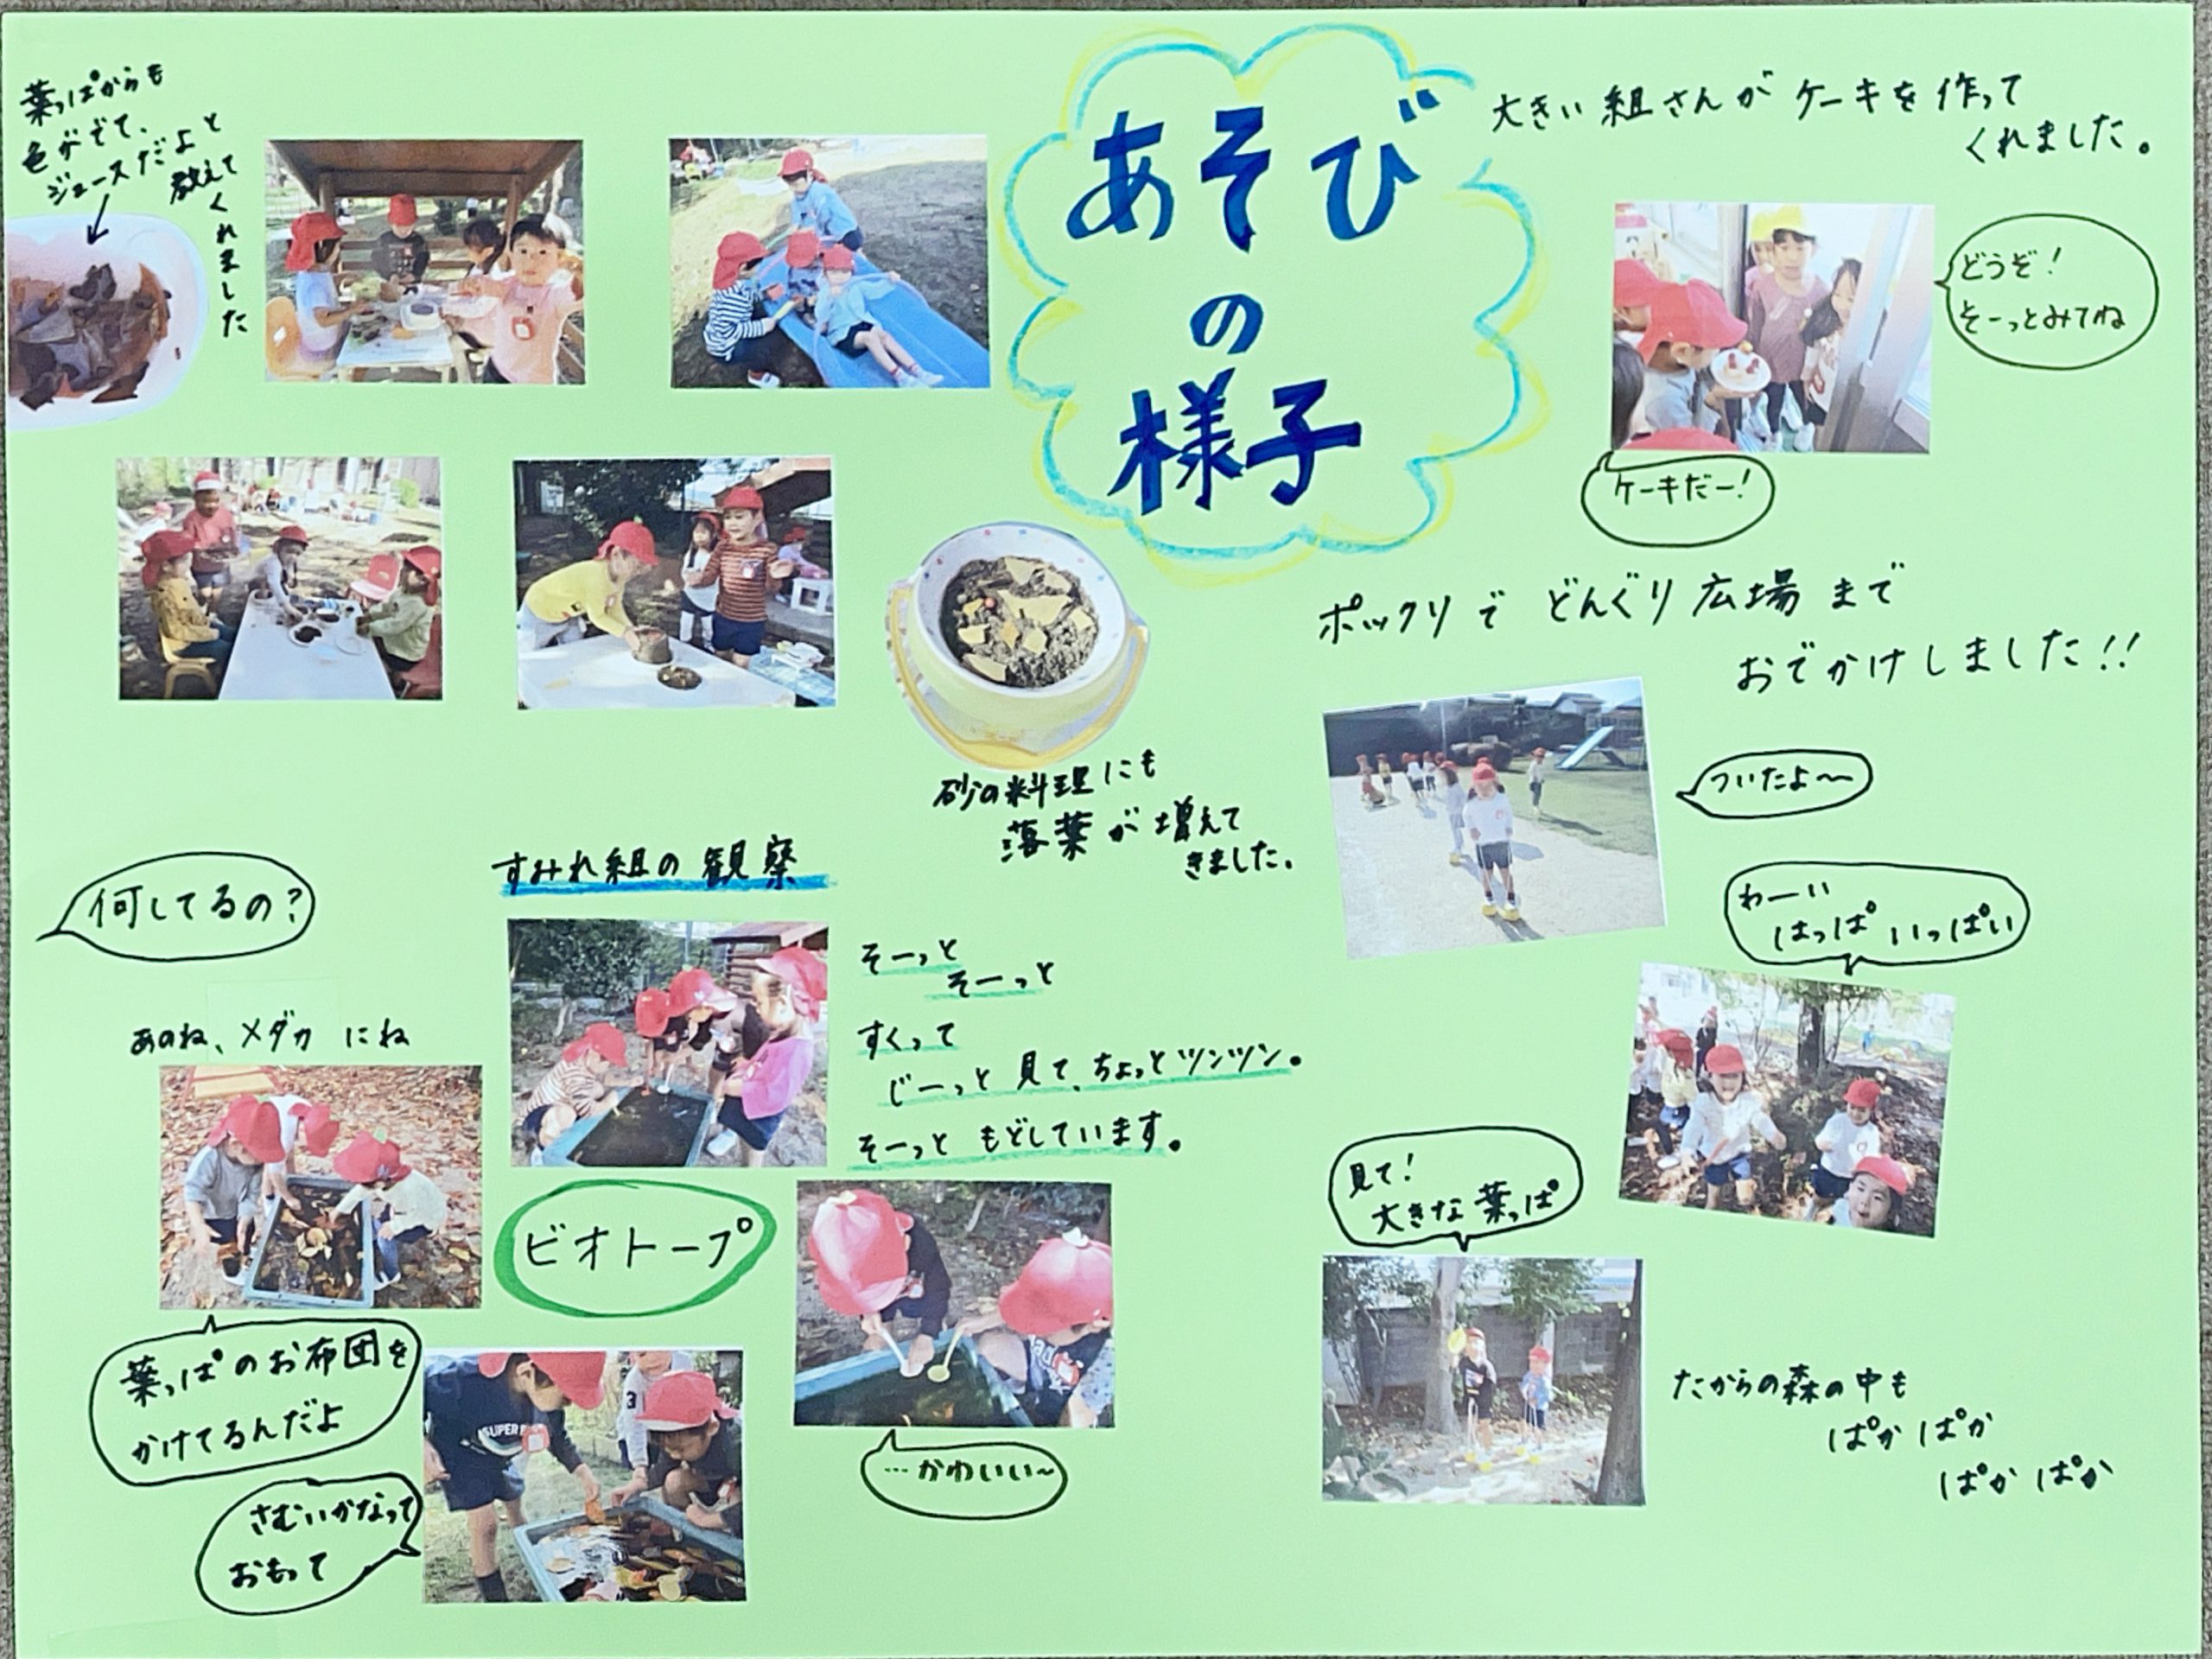 あそび
の
様子
葉っぱからも
色がでて、
ジュースだよと
教えて
くれました
大きい組さんがケーキを作って
くれました。
どうぞ!
そーっとみてね
ケーキだー!
ポックリでどんぐり広場まで
おでかけしました!!
ついたよ〜
わーい
はっぱいっぱい
見て!
大きな葉っぱ
たからの森の中も
ぱかぱか
ぱかぱか
砂の料理にも
落葉が増えて
きました。
すみれ組の観察
そーっと
そーっと
すくって
じーっと見て、ちょっとツンツン。
そーっともどしています。
ビオトープ
…かわいい~
何してるの?
あのね、メダカにね
葉っぱのお布団を
かけてるんだよ
さむいかなって
おもって
SUPER
3